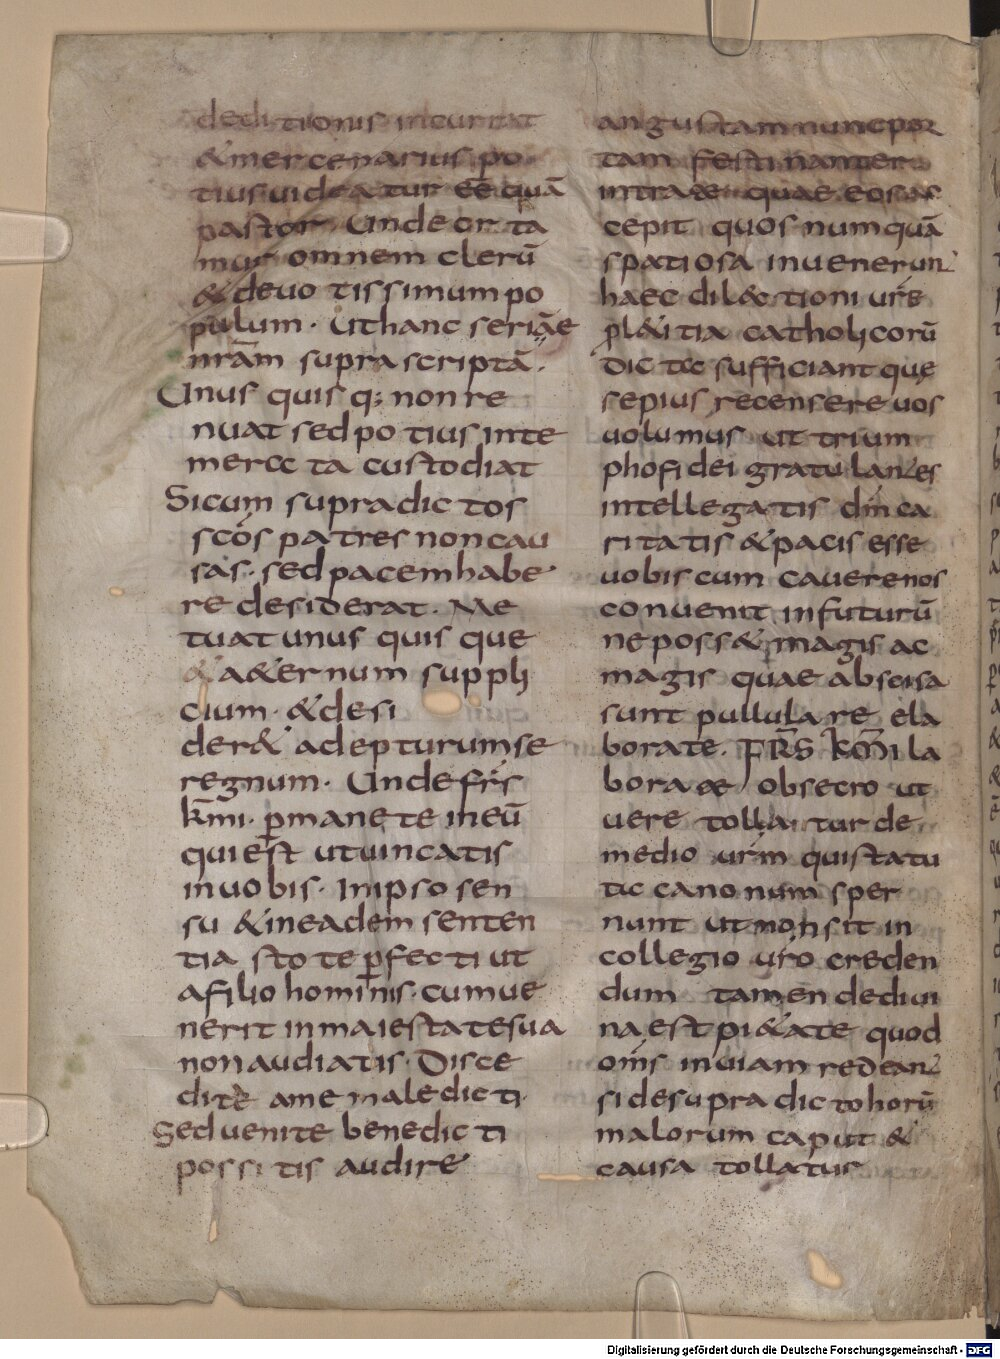 deditionis incurrat
& mercenarius po
tius uideatur eē quā
pastor. Unde orta
mur omnem clerū
& deuotissimum po
pulum. Ut hanc seriāe
nrām supra scriptā.
Unus quisq; non re
nuat sed potius inte
merata custodiat
Sicum supra dictos
scōs patres non cau
sas. sed pacem habe
re desiderat. Me
tuat unus quisque
& a&ernum suppli
cium. & desi
der& adepturum se
regnum. Unde frīs
k̄mi. p̱manete in eū
qui est ut uincatis
in uobis. In ipso sen
su & in eadem senten
tia stote p̱fecti ut
a filio hominis. cum ue
nerit in maiestate sua
non audiatis. Disce
dite a me maledicti.
Sed uenite benedicti
possitis audire
angustam nunc por
tam festinanter
intrate quae eos ac
cepit quos numquā
spatiosa inuenerunt
haec dilectioni urē
pl&itia catholicorū
dicta sufficiant que
sepius recensere uos
uolumus ut trium
pho fidei gratulantes
intellegatis dn̄i ca
ritatis & pacis esse
uobiscum cauere nos
conuenit in futurū
ne poss& magis ac
magis quae abscisa
sunt pullulare ela
borate. FR̄S k̄m̄i la
borate obsecro ut
uere tollatur de
medio urm̄ qui statu
ta canonum sper
nunt ut non sit in
collegio uro creden
dum tamen de diui
na est pi&ate quod
oms in uiam redeant
si de supra dictohorū
malorum caput &
causa tollatur
Digitalisierung gefördert durch die Deutsche Forschungsgemeinschaft - DFG